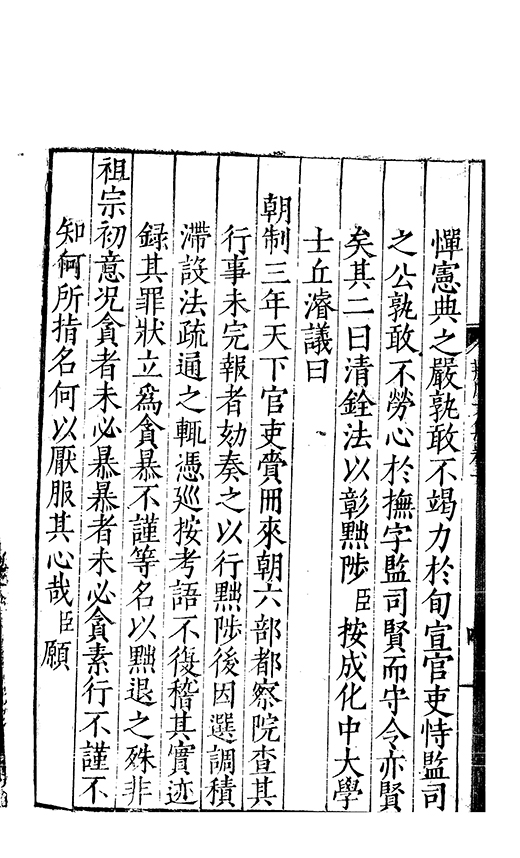 憚憲典之嚴孰敢不竭力於旬宣官吏恃監司
之公孰敢不勞心於撫字監司賢而守令亦賢
矣其二曰清銓法以彰黜陟臣按成化中大學
士丘濬議曰
朝制三年天下官吏賫冊來朝六部都察院查其
行事未完報者劾奏之以行黜陟後因選調積
滯設法疏通之輒憑巡按考語不復稽其實迹
錄其罪狀立爲貪暴不謹等名以黜退之殊非
祖宗初意況貪者未必暴暴者未必貪素行不謹不
知何所指名何以厭服其心哉臣願